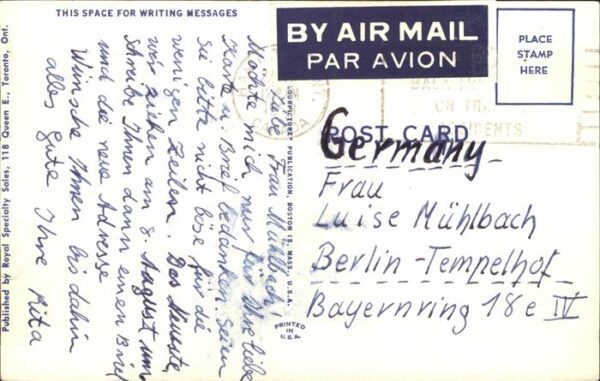 THIS SPACE FOR WRITING MESSAGES
Liebe Frau Mühlbach,
Möchte mich nur für Ihre liebe
Karte u. Brief bedanken. Seien
Sie bitte nicht böse für die
wenigen Zeilen. Das Neueste,
wir ziehen am 8. August um.
Schreibe Ihnen dann einen Brief
und die neue Adresse.
Wünsche Ihnen bis dahin
alles Gute Ihre Rita
Published by Royal Specialty Sales, 118 Queen E., Toronto, Ont.
PUBLICATION, BOSTON 15, MASS., U.S.A.
BY AIR MAIL
PAR AVION
PLACE
STAMP
HERE
CANADA
POST CARD
Germany
Frau
Luise Mühlbach
Berlin-Tempelhof
Bayernring 18e IV
PRINTED
IN
U.S.A.